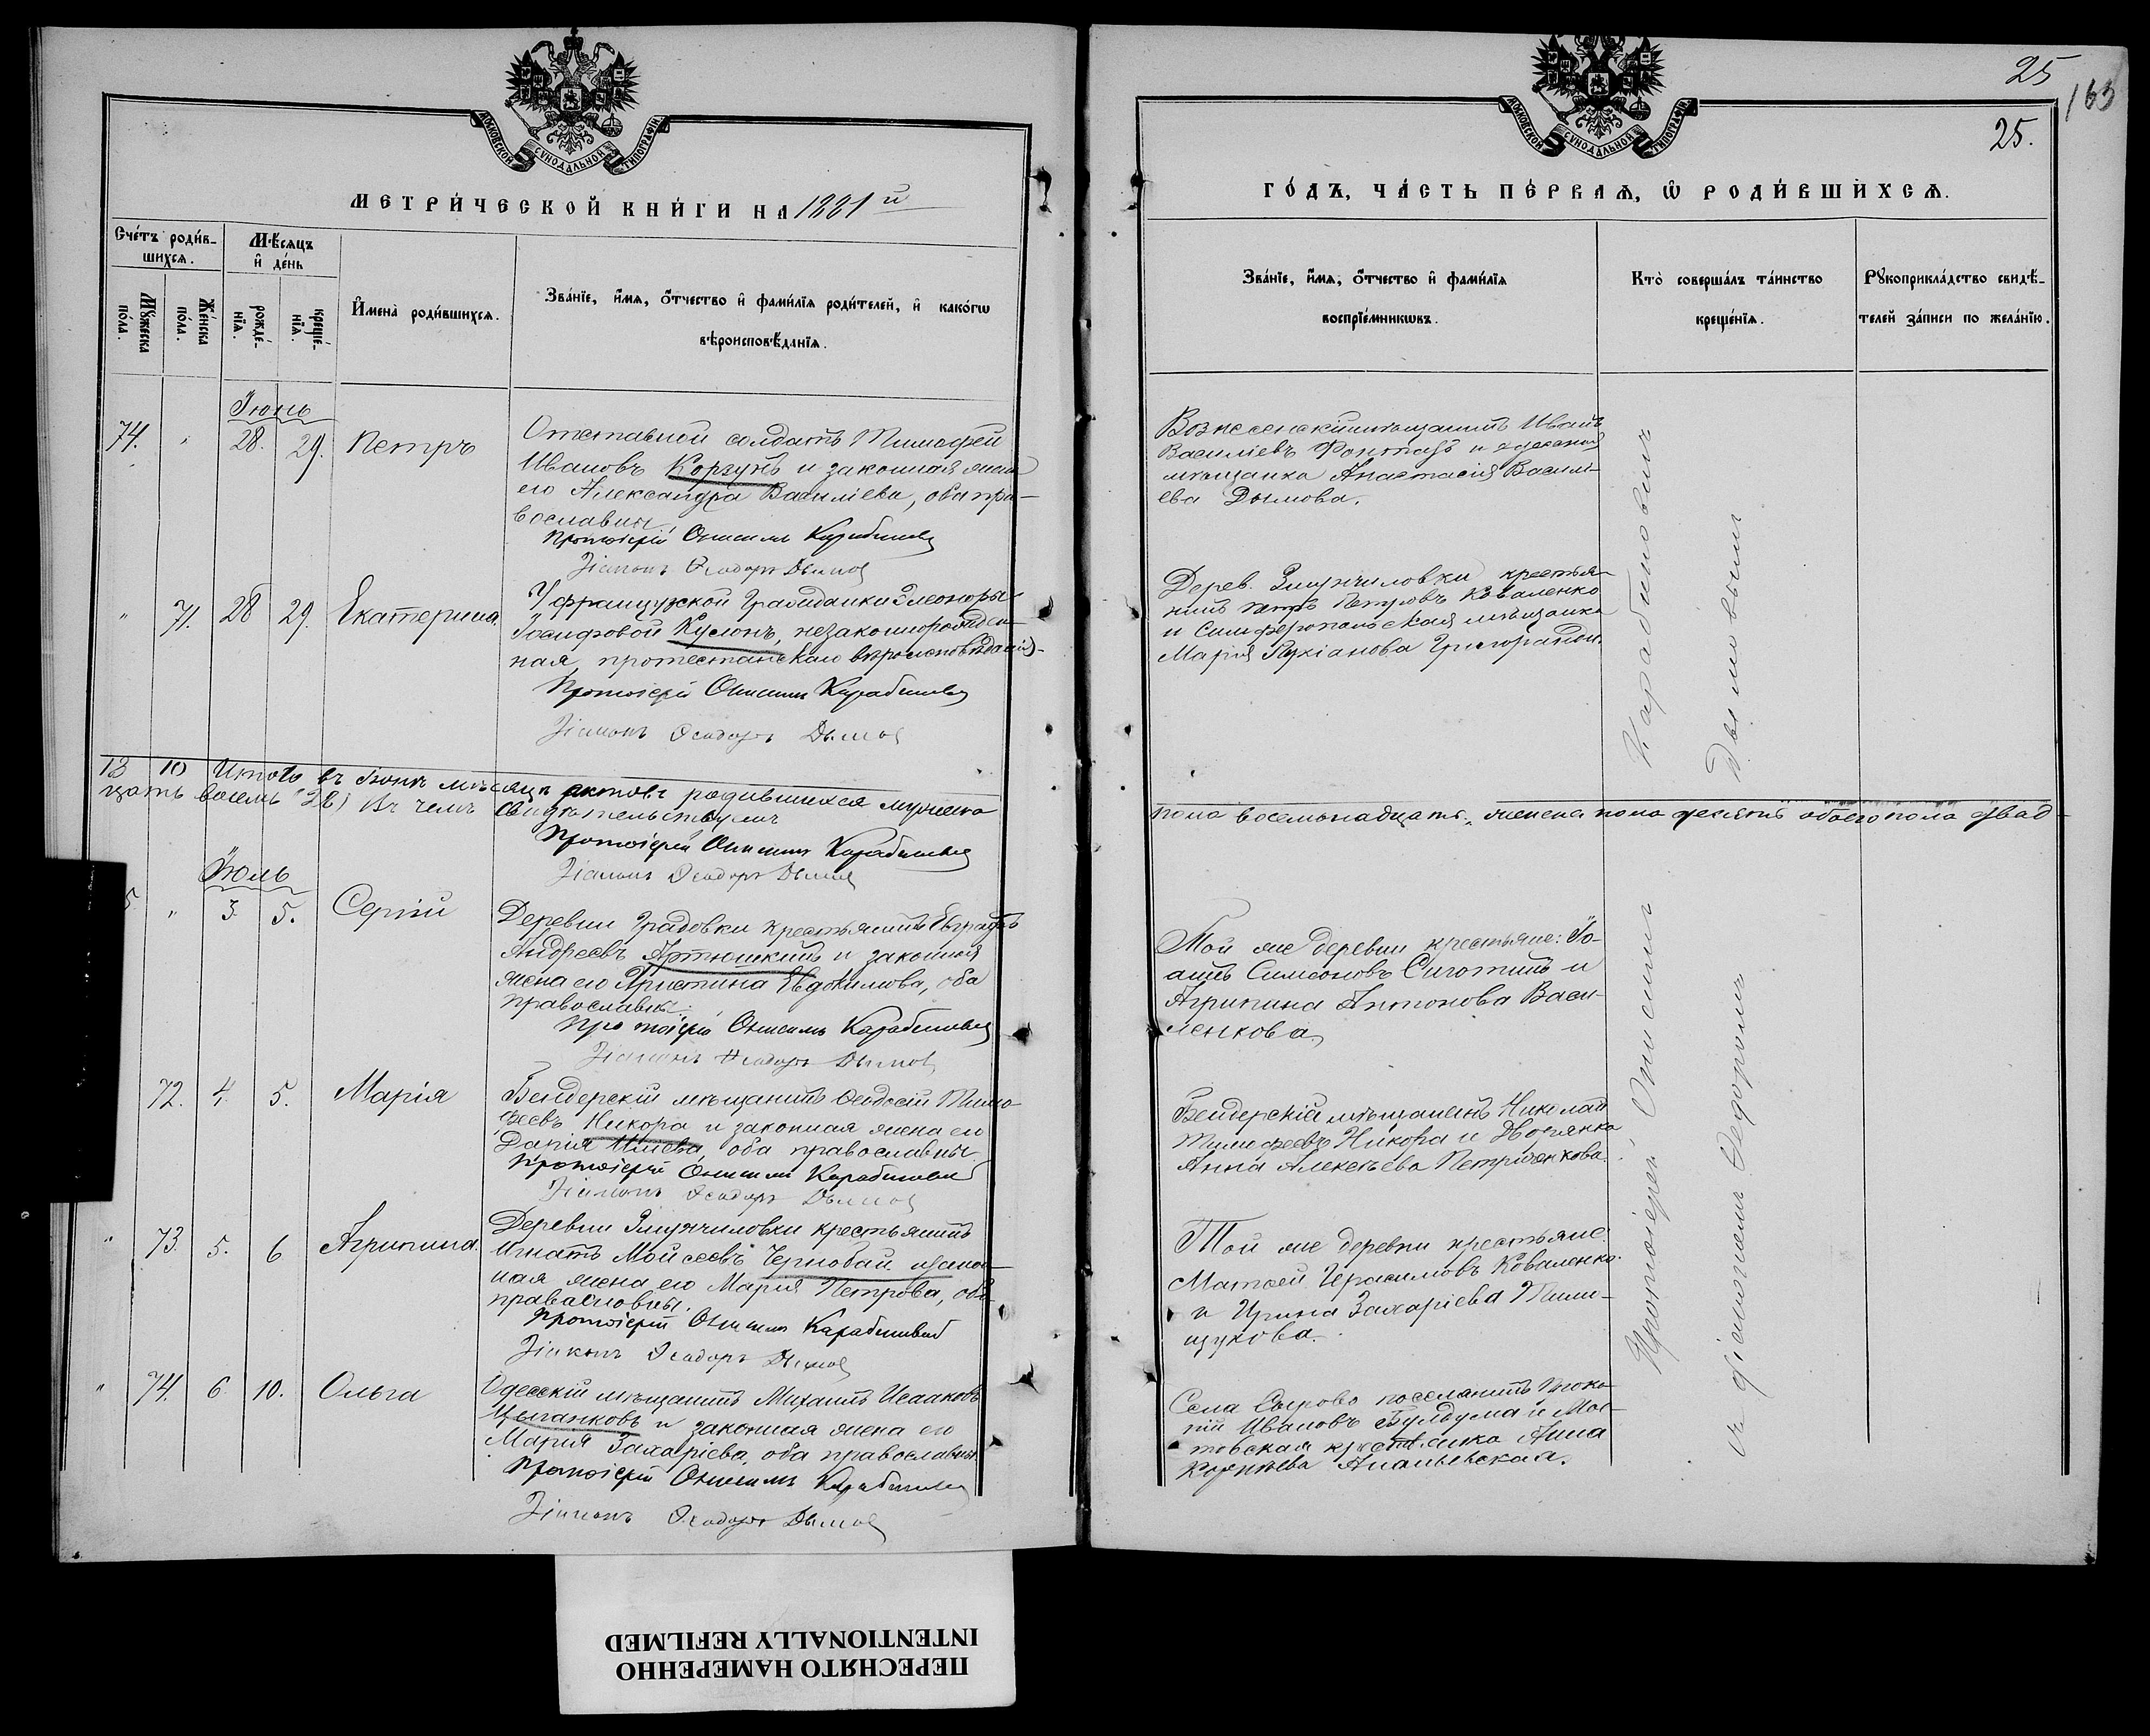 МОСКОВСКОЙ СѴНОДАЛЬНОЙ ТИПОГРАФІИ
МЕТРИ́ЧЕСКОЙ КНИ́ГИ НА 1881 й
Сче́тъ роди́в-
шихсѧ.
Мѣ́сѧцъ
и҆ де́нь
Мꙋ́жеска
по́ла.
Же́нска
по́ла.
рожде́-
нїѧ.
креще́-
нїѧ.
И҆мена̀ роди́вшихсѧ.
Зва́нїе, и҆́мѧ, ѻ҆́тчество и҆ фами́лїѧ роди́телей, и҆ како́гѡ
вѣроисповѣ́данїѧ.
Іюнь
74. " 28. 29. Петръ
Отставной солдатъ Тимофей
Ивановъ Коргунъ и законная жена
его Александра Василіева, оба пра-
вославны
Протоіерей Онисимъ Карабиновъ
Діаконъ Ѳеодоръ Дымов
" 71. 28 29. Екатерина
У французской гражданки Элеоноры
Іосифовой Кулонъ, незаконнорожден-
ная, протестанскаго вѣроисповѣданія-
Протоіерей Онисимъ Карабиновъ
Діаконъ Ѳеодоръ Дымов
18 10 Итого въ Іюнѣ мѣсяцѣ актовъ родившихся мужеска
цать восемь (28) въ чемъ свидѣтельствуемъ
Протоіерей Онисимъ Карабиновъ
Діаконъ Ѳеодоръ Дымов
Іюль
5. " 3. 5. Сергій
Деревни Градовки крестьянинъ Евграфъ
Андреевъ Артюшкинъ и законная
жена его Христина Евдокимова, оба
православны.
Протоіерей Онисимъ Карабиновъ
Діаконъ Ѳеодоръ Дымов
72. 4. 5. Марія
Бендерскій мѣщанинъ Ѳеодосій Тимо-
феевъ Никора и законная жена его
Дарія Иліева, оба православны.
Протоіерей Онисимъ Карабиновъ
Діаконъ Ѳеодоръ Дымов
" 73. 5. 6 Агрипина.
Деревни Злунчиловки крестьянинъ
Игнатъ Мойсеевъ Чернобай и закон-
ная жена его Марія Петрова, оба
православны.
Протоіерей Онисимъ Карабиновъ
Діаконъ Ѳеодоръ Дымов
" 74. 6. 10. Ольга
Одесскій мѣщанинъ Михаилъ Исааковъ
Цыганковъ и законная жена его
Марія Захаріева, оба православны.
Протоіерей Онисимъ Карабиновъ
Діаконъ Ѳеодоръ Дымов
25
163
25.
МОСКОВСКОЙ СѴНОДАЛЬНОЙ ТИПОГРАФІИ
ГО́ДЪ, ЧА́СТЬ ПЕ́РВАѦ, Ѡ҆ РОДИ́ВШИХСѦ.
Зва́нїе, и҆́мѧ, ѻ҆́тчество и҆ фами́лїѧ
воспрїе́мникѡвъ.
Кто̀ соверша́лъ та́инство
креще́нїѧ.
Рꙋкоприкла́дство свидѣ́-
телей за́писи по жела́нїю.
Вознесенскій мѣщанинъ Иванъ
Василіевъ Фонтазъ и одесская
мѣщанка Анастасія Васили-
ева Дымова.
Дерев. Злунчиловки крестья-
нинъ Петръ Петровъ Коваленко
и Симферопольская мѣщанка
Марія Лукіанова Григоранди.
пола восемьнадцать, женска пола десять обоего пола двад-
Той же деревни крестьяне: Іо-
аннъ Симеоновъ Сиротинъ и
Агрипина Антонова Васи-
ленкова.
Бендерскій мѣщанинъ Николай
Тимофеевъ Никора и Дворянка
Анна Алексѣева Петриченкова.
Той же деревни крестьяне
Матвей Герасимовъ Коваленко
и Ирина Захаріева Тими-
щукова.
Села Сырово поселянинъ Проко-
пій Ивановъ Булдума и Мос-
товская крестьянка Анна
Корнѣева Ананьевская.
Протоіерей Онисимъ Карабиновичъ
и діаконъ Ѳеодоромъ Дымовымъ
ПЕРЕСНЯТО НАМЕРЕННО
INTENTIONALLY REFILMED